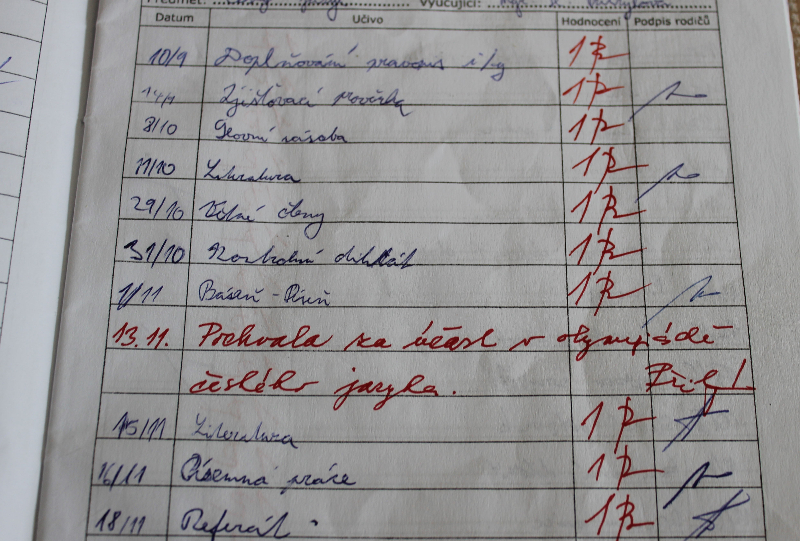 Předmět: Vyučující:
Datum Učivo Hodnocení Podpis rodičů
10/9 Doplňování pravopis i/y 1
14/9 Zjišťovací prověrka 1
8/10 Slovní zásoba 1
11/10 Literatura 1
29/10 Větné členy 1
31/10 Kontrolní diktát 1
1/11 Báseň - Píseň 1
13.11. Pochvala za účast v olympiádě
českého jazyka.
15/11 Literatura 1
16/11 Písemná práce 1
18/11 Referát 1